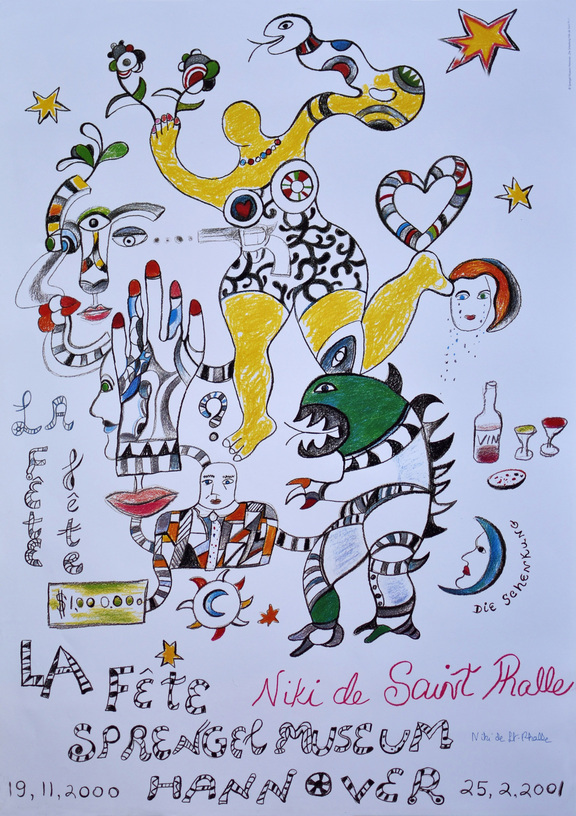 LA
FÊTE
fête
?
VIN
DIE SCHENKUNG
$1000.00
LA FÊTE
Niki de Saint Phalle
SPRENGEL MUSEUM
Niki de St. Phalle
HANNOVER
19,11,2000
25,2,2001